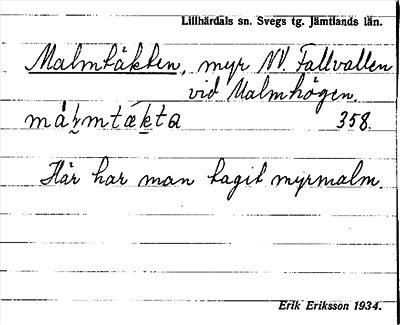 Lillhärdals sn. Svegs tg. Jämtlands län.
Malmtäkten, myr NV. Fallvallen
vid Malmhögen.
måɽmtækta 358.
Här har man tagit myrmalm.
Erik Eriksson 1934.